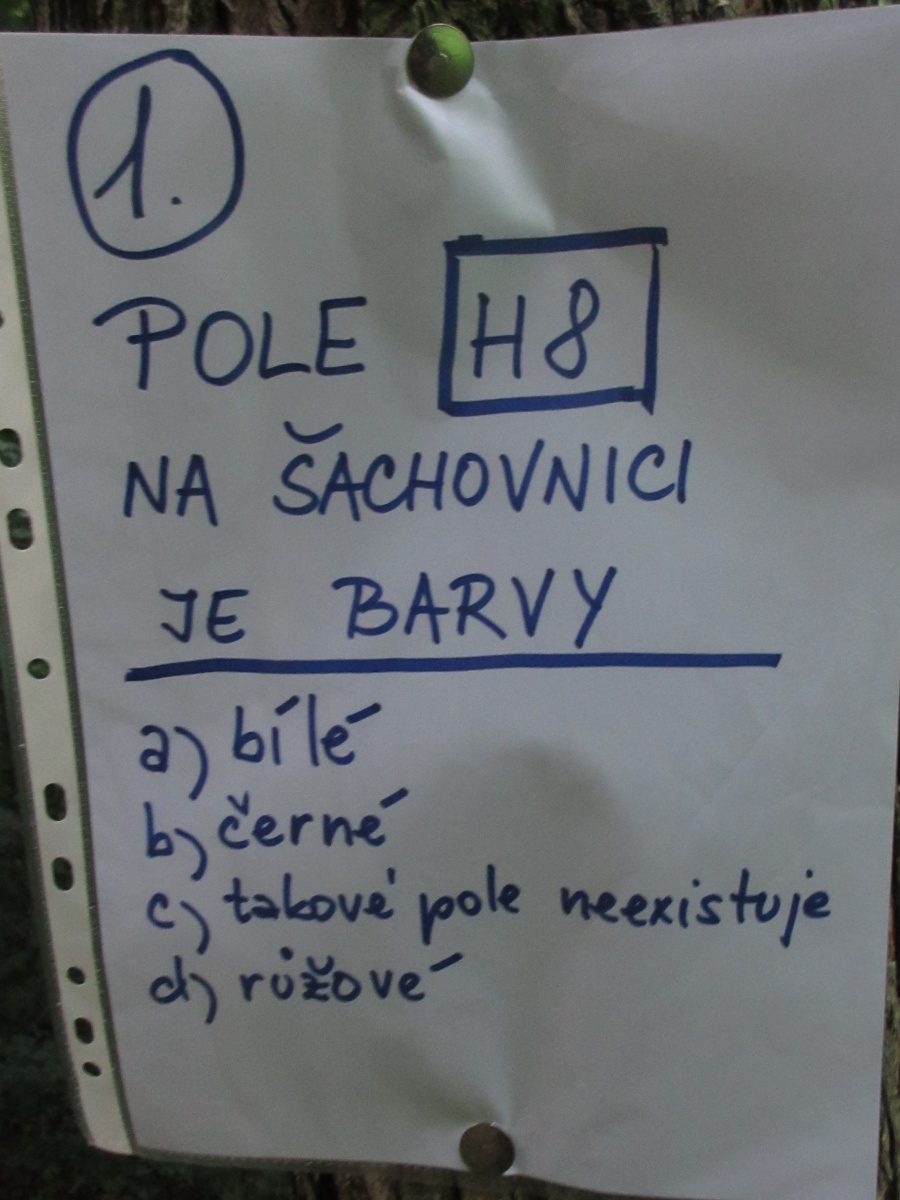 1.
POLE H8
NA ŠACHOVNICI
JE BARVY
a) bílé
b) černé
c) takové pole neexistuje
d) růžové